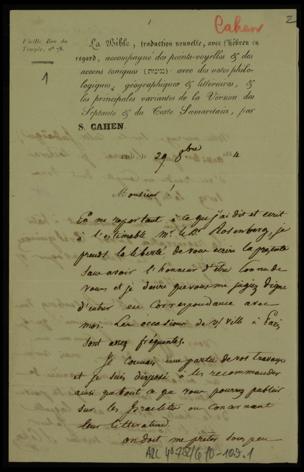 2
Cahen
Vieille Rue du
Temple, N° 78.
1
La Bible, traduction nouvelle, avec l'Hébreu en
regard, accompagné des points-voyelles &
des accens toniques (נגינות) avec des notes philo-
logiques, géographiques & littéraires, &
les principales variantes de la Version des
Septante & du Texte Samaritain, par
S. CAHEN
29 8bre
Monsieur!
En me rapportant à ce que j'ai dit et écrit
à l'estimable Mr. le Dr Rosenberg, je
prends la liberté de vous écrire la présente
sans avoir l'honneur d'être connu de
vous et je désire que vous me jugiez digne
d'entrer en correspondance avec
moi. Les occasions de v/ ville à Paris
sont assez fréquentes.
Je connais une partie de vos travaux
et je suis disposé à les recommander
ainsi que tout ce que vous pourrez publier
sur les Israélites ou concernant
leur littérature
on doit me prêter sous peu